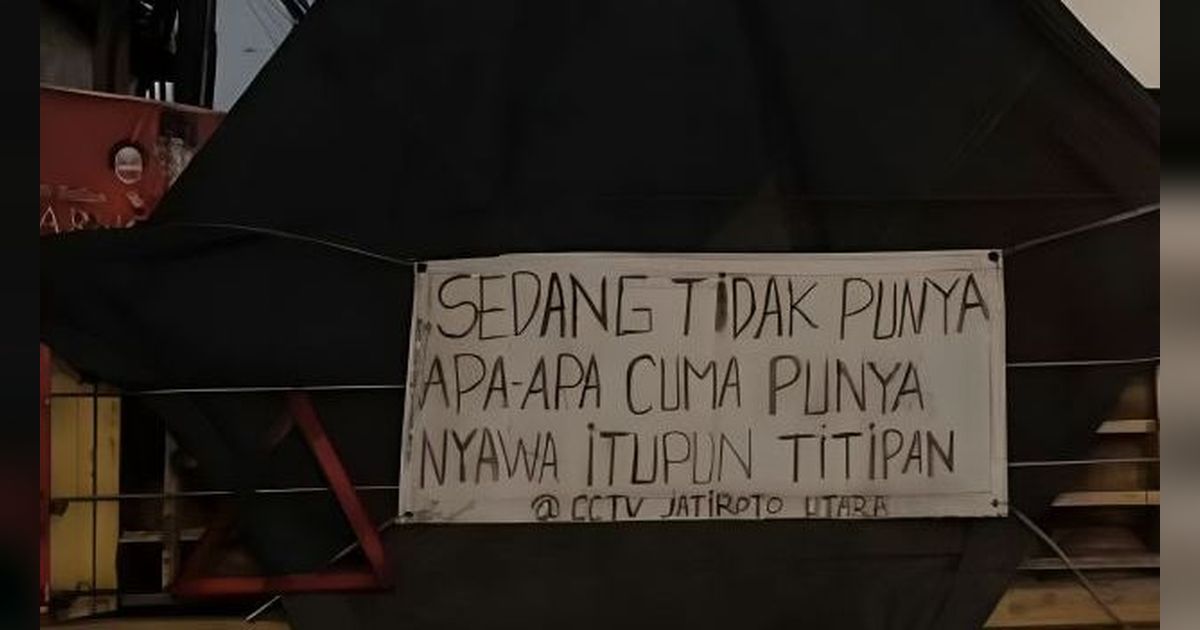 SEDANG TiDAK PUNYA
APA-APA CUMA PUNYA
NYAWA iTUPUN TiTiPAN
@ CCTV JATiROTO UTARA